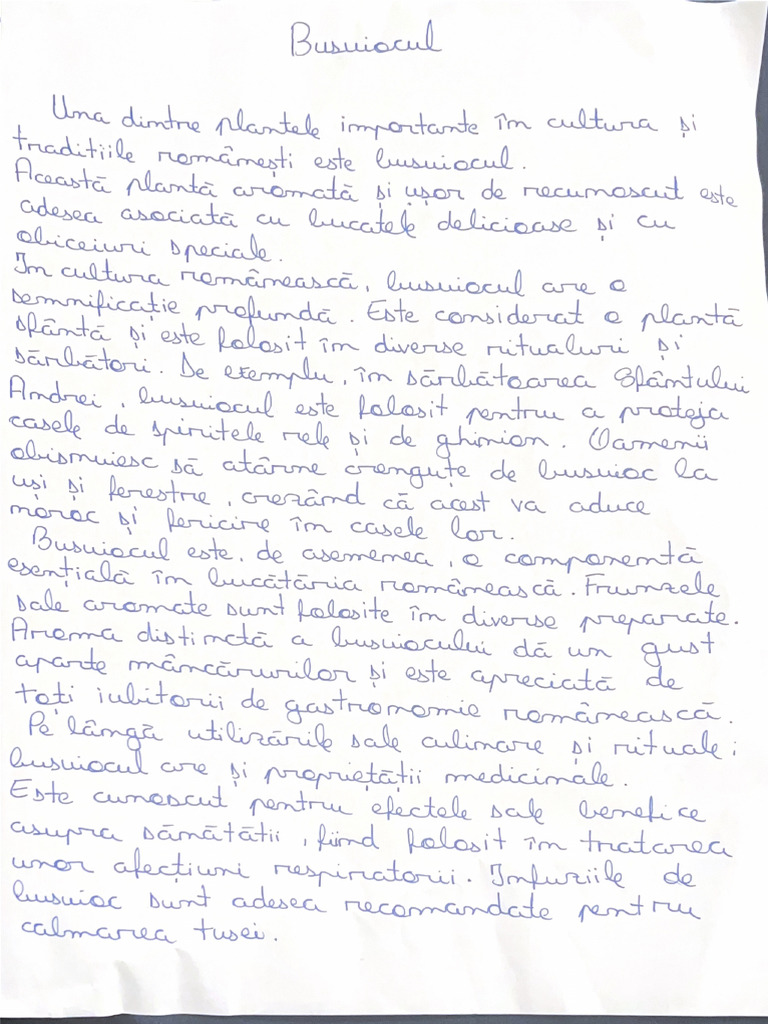 Busuiocul
Una dintre plantele importante în cultura și
tradițiile românești este busuiocul.
Această plantă aromată și ușor de recunoscut este
adesea asociată cu bucatele delicioase și cu
obiceiuri speciale.
În cultura românească, busuiocul are o
semnificație profundă. Este considerat o plantă
sfântă și este folosit în diverse ritualuri și
sărbători. De exemplu, în sărbătoarea Sfântului
Andrei, busuiocul este folosit pentru a proteja
casele de spiritele rele și de ghinion. Oamenii
obișnuiesc să atârne crenguțe de busuioc la
uși și ferestre, crezând că acest va aduce
noroc și fericire în casele lor.
Busuiocul este, de asemenea, o componentă
esențială în bucătăria românească. Frunzele
sale aromate sunt folosite în diverse preparate.
Aroma distinctă a busuiocului dă un gust
aparte mâncărurilor și este apreciată de
toți iubitorii de gastronomie românească.
Pe lângă utilizările sale culinare și rituale;
busuiocul are și proprietății medicinale.
Este cunoscut pentru efectele sale benefice
asupra sănătății, fiind folosit în tratarea
unor afecțiuni respiratorii. Infuziile de
busuioc sunt adesea recomandate pentru
calmarea tusei.